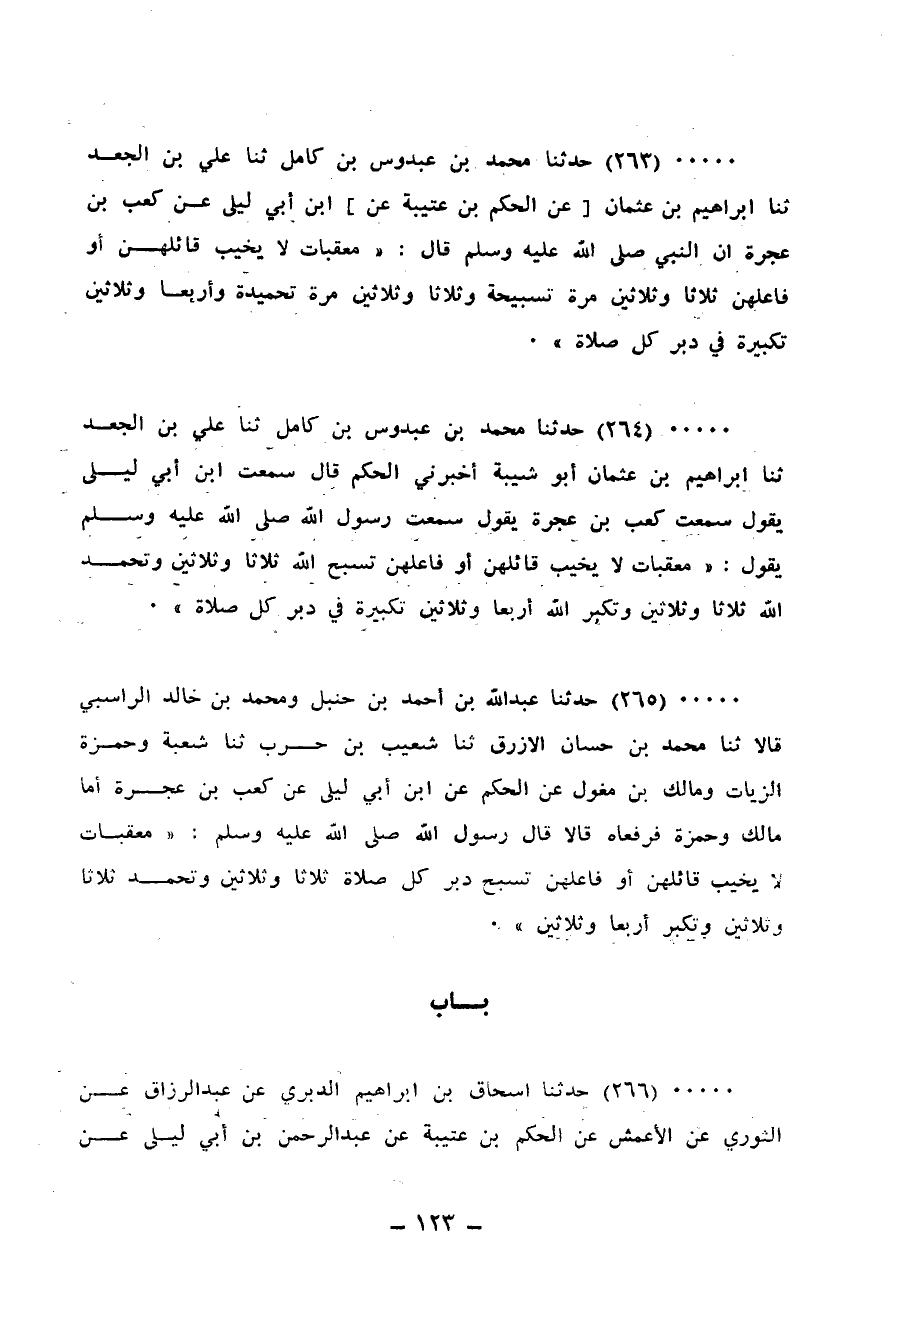 ..... (٢٦٣) حدثنا محمد بن عبدوس بن كامل ثنا علي بن الجعد
ثنا ابراهيم بن عثمان [ عن الحكم بن عتيبة عن ] ابن أبي ليلى عن كعب بن
عجرة ان النبي صلى الله عليه وسلم قال : « معقبات لا يخيب قائلهن أو
فاعلهن ثلاثا وثلاثين مرة تسبيحة وثلاثا وثلاثين مرة تحميدة وأربعا وثلاثين
تكبيرة في دبر كل صلاة » .
..... (٢٦٤) حدثنا محمد بن عبدوس بن كامل ثنا علي بن الجعد
ثنا ابراهيم بن عثمان أبو شيبة أخبرني الحكم قال سمعت ابن أبي ليلى
يقول سمعت كعب بن عجرة يقول سمعت رسول الله صلى الله عليه وسلم
يقول : « معقبات لا يخيب قائلهن أو فاعلهن تسبح الله ثلاثا وثلاثين وتحمد
الله ثلاثا وثلاثين وتكبر الله أربعا وثلاثين تكبيرة في دبر كل صلاة » .
..... (٢٦٥) حدثنا عبدالله بن أحمد بن حنبل ومحمد بن خالد الراسبي
قالا ثنا محمد بن حسان الازرق ثنا شعيب بن حرب ثنا شعبة وحمزة
الزيات ومالك بن مغول عن الحكم عن ابن أبي ليلى عن كعب بن عجرة أما
مالك وحمزة فرفعاه قالا قال رسول الله صلى الله عليه وسلم : « معقبات
لا يخيب قائلهن أو فاعلهن تسبح دبر كل صلاة ثلاثا وثلاثين وتحمد ثلاثا
وثلاثين وتكبر أربعا وثلاثين » .
بـاب
..... (٢٦٦) حدثنا اسحاق بن ابراهيم الدبري عن عبدالرزاق عن
الثوري عن الأعمش عن الحكم بن عتيبة عن عبدالرحمن بن أبي ليلى عن
- ١٢٣ -